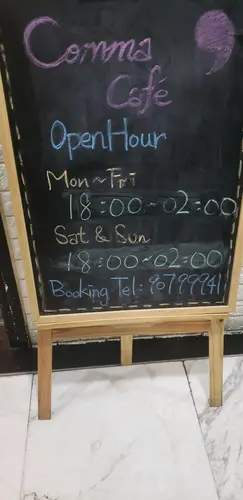 Comma
Café
Open Hour
Mon~Fri
18:00~02:00
Sat & Sun
18:00~02:00
Booking Tel: 90799941